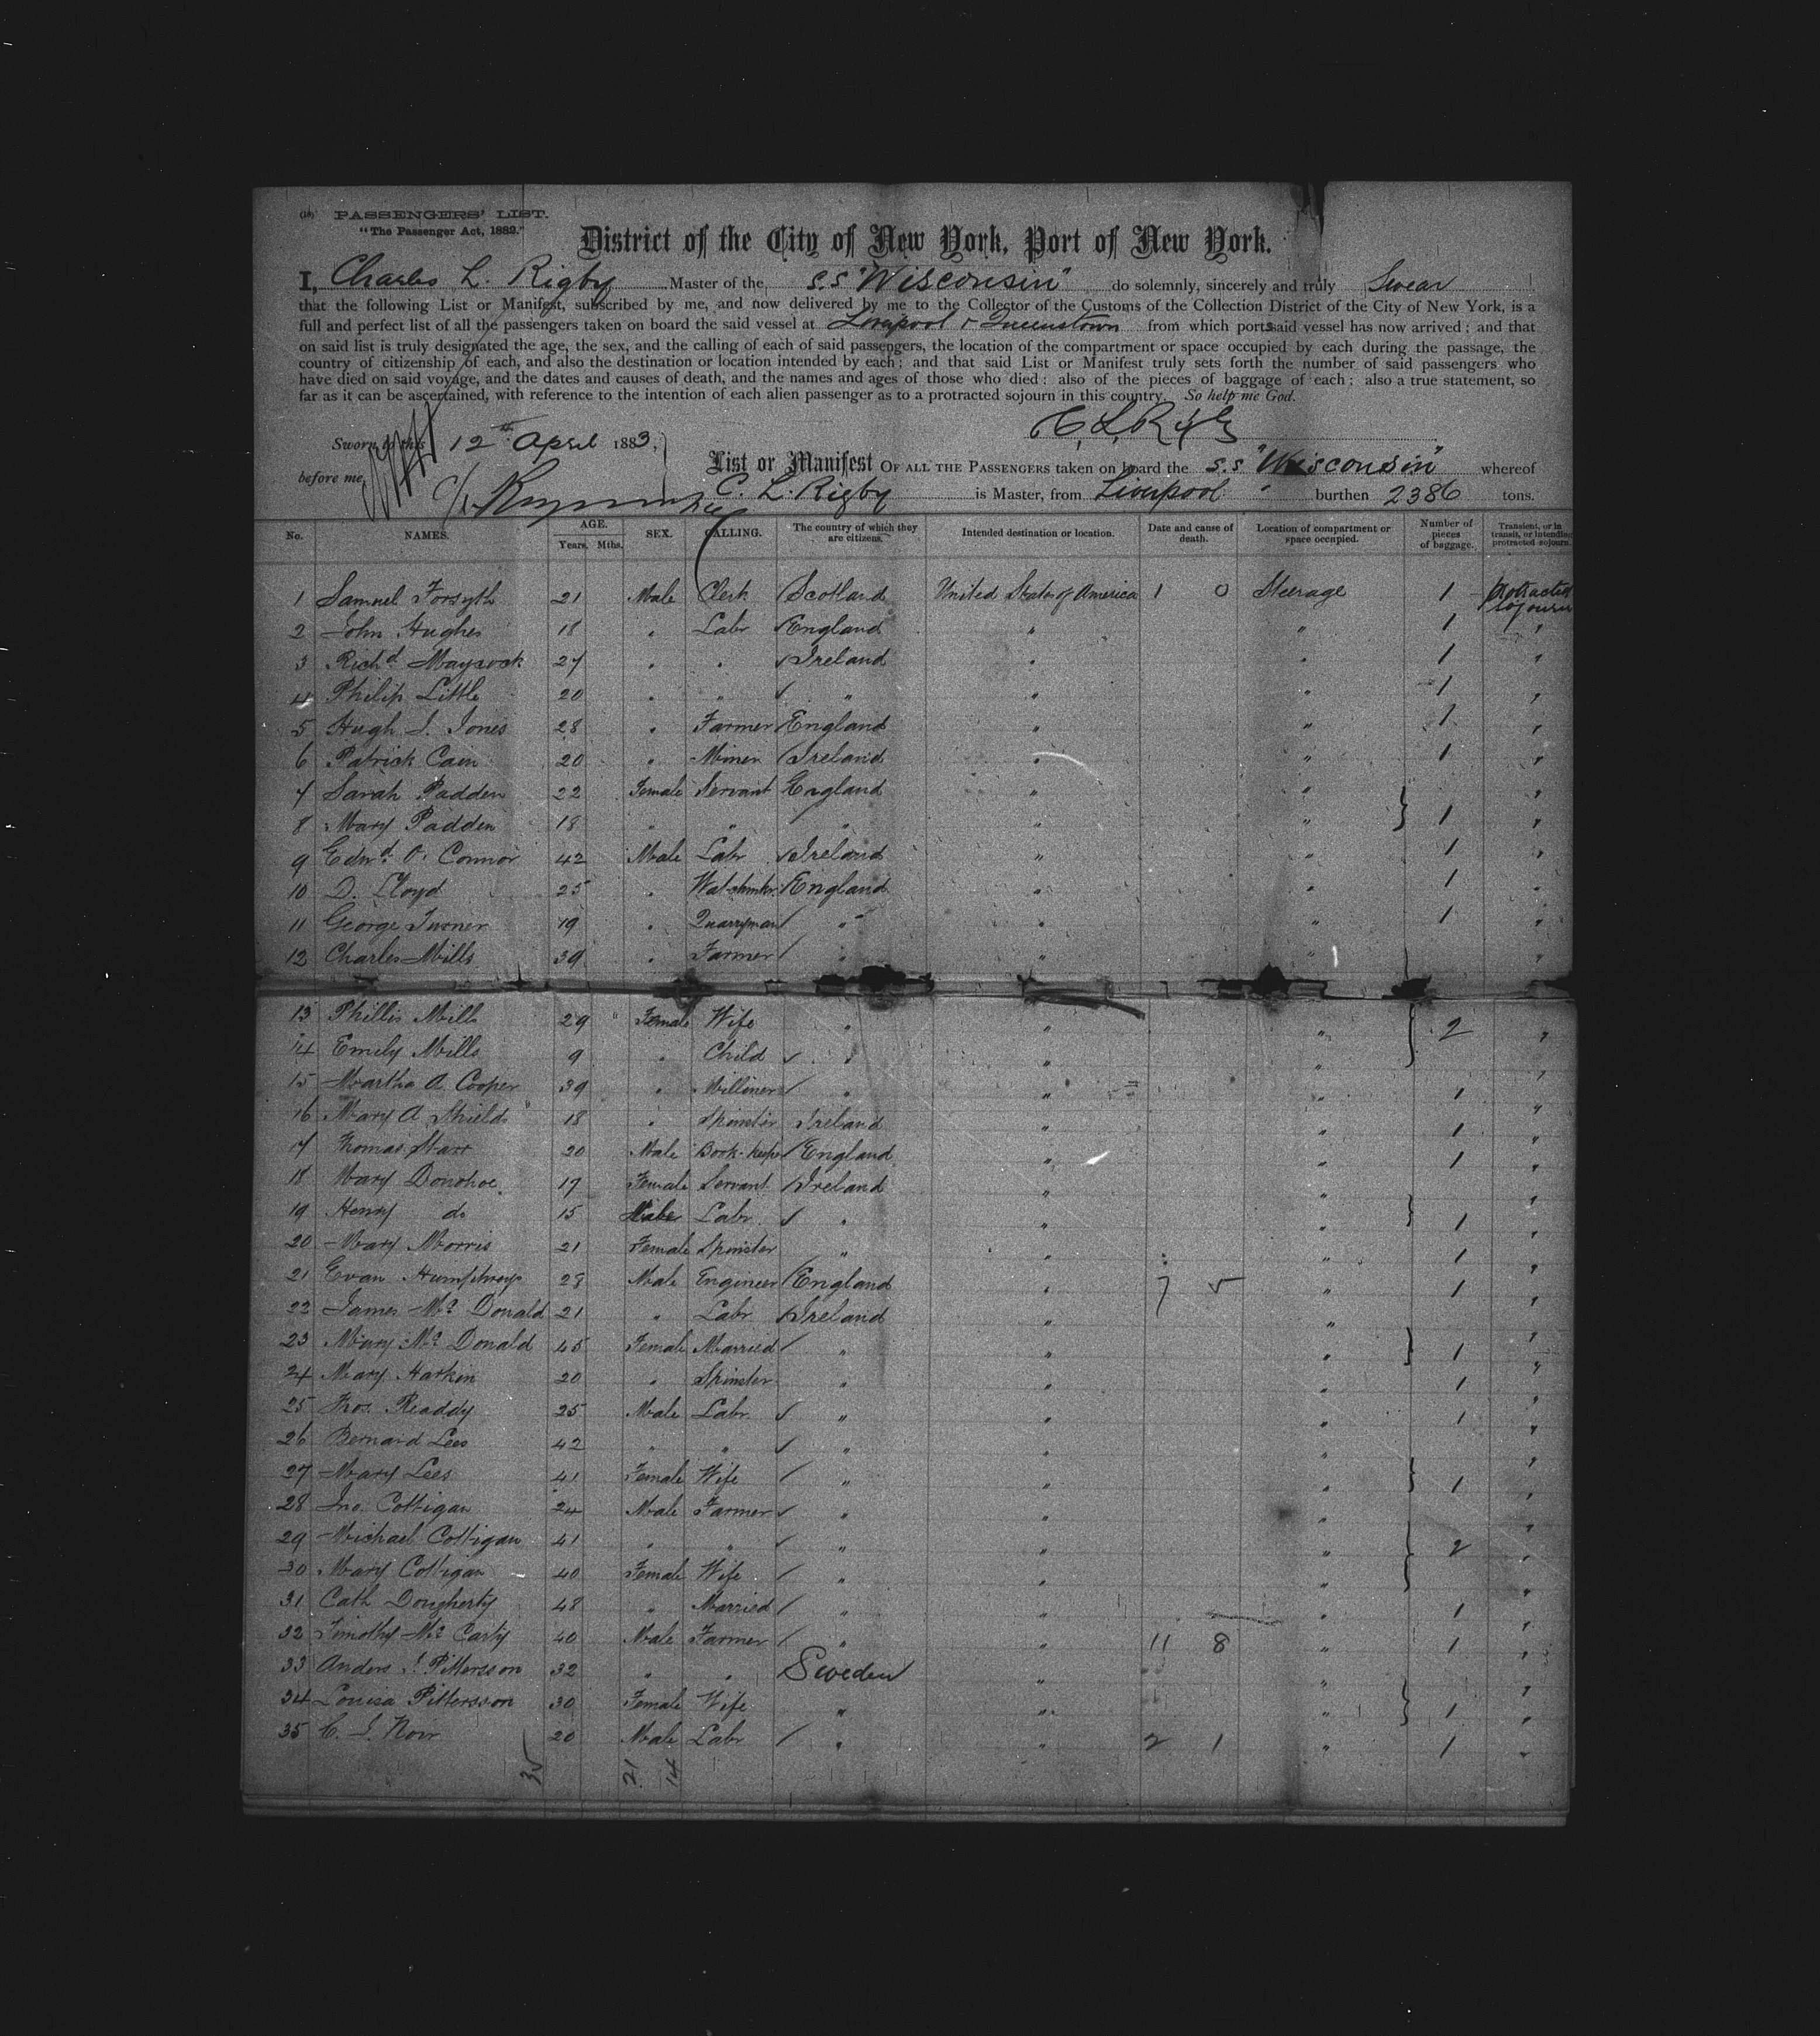 (10) PASSENGERS' LIST.
"The Passenger Act, 1882."
District of the City of New York, Port of New York.
I, Charles L. Rigby Master of the S.S "Wisconsin" do solemnly, sincerely and truly Swear
that the following List or Manifest, subscribed by me, and now delivered by me to the Collector of the Customs of the Collection District of the City of New York, is a
full and perfect list of all the passengers taken on board the said vessel at Liverpool & Queenstown from which port said vessel has now arrived; and that
on said list is truly designated the age, the sex, and the calling of each of said passengers, the location of the compartment or space occupied by each during the passage, the
country of citizenship of each, and also the destination or location intended by each; and that said List or Manifest truly sets forth the number of said passengers who
have died on said voyage, and the dates and causes of death, and the names and ages of those who died: also of the pieces of baggage of each; also a true statement, so
far as it can be ascertained, with reference to the intention of each alien passenger as to a protracted sojourn in this country. So help me God.
C. L. Rigby
Sworn to this 12th April 1883,
before me
List or Manifest OF ALL THE PASSENGERS taken on board the S.S "Wisconsin" whereof
C. L. Rigby is Master, from Liverpool " burthen 2386 tons.
No. NAMES. AGE. Years. Mths. SEX. CALLING. The country of which they are citizens. Intended destination or location. Date and cause of death. Location of compartment or space occupied. Number of pieces of baggage. Transient, or in transit, or intending protracted sojourn.
1 Samuel Forsyth 21 Male Clerk Scotland United States of America 1 0 Steerage 1 Protracted sojourn
2 John Hughes 18 " Labr England " " 1 "
3 Richd 27 " " Ireland " " 1 "
4 Philip Little 20 " " " " " 1 "
5 Hugh J. Jones 28 " Farmer England " " 1 "
6 Patrick Cain 20 " Miner Ireland " " 1 "
7 Sarah Padden 22 Female Servant England " " "
8 Mary Padden 18 " " " " " 1 "
9 Edwd O'Connor 42 Male Labr Ireland " " 1 "
10 D. Lloyd 25 " Watchmkr England " " 1 "
11 George Turner 19 " Quarryman " " " 1 "
12 Charles Mills 39 " Farmer " " " "
13 Phillis Mills 29 Female Wife " " " 2 "
14 Emily Mills 9 " Child " " " "
15 Martha A. Cooper 39 " Milliner " " " 1 "
16 Mary A Shields 18 " Spinster Ireland " " 1 "
17 Thomas Starr 20 Male Book-keeper England " " 1 "
18 Mary Donohoe 17 Female Servant Ireland " " "
19 Henry do 15 Male Labr " " " 1 "
20 Mary Morris 21 Female Spinster " " " 1 "
21 Evan Humphreys 28 Male Engineer England " 7 5 " 1 "
22 James Mc Donald 21 " Labr Ireland " " "
23 Mary Mc Donald 45 Female Married " " " 1 "
24 Mary Harkin 20 " Spinster " " " 1 "
25 Thos. Readdy 25 Male Labr " " " 1 "
26 Bernard Lees 42 " " " " " "
27 Mary Lees 41 Female Wife " " " 1 "
28 Jno. Cottigan 24 Male Farmer " " " "
29 Michael Cottigan 41 " " " " " 2 "
30 Mary Cottigan 40 Female Wife " " " "
31 Cath Dougherty 48 " Married " " " 1 "
32 Timothy Mc Carty 40 Male Farmer " " 11 8 " 1 "
33 Anders J. Pettersson 32 " " Sweden " " "
34 Louisa Pettersson 30 Female Wife " " " 1 "
35 C. J. Noir 20 Male Labr " " 2 1 " 1 "
35 21 14